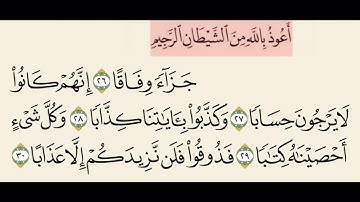 أَعُوذُ بِاللَّهِ مِنَ الشَّيْطَانِ الرَّجِيمِ
جَزَآءً وِفَاقًا ٢٦ إِنَّهُمْ كَانُوا۟
لَا يَرْجُونَ حِسَابًا ٢٧ وَكَذَّبُوا۟ بِـَٔايَـٰتِنَا كِذَّابًا ٢٨ وَكُلَّ شَىْءٍ
أَحْصَيْنَـٰهُ كِتَـٰبًا ٢٩ فَذُوقُوا۟ فَلَن نَّزِيدَكُمْ إِلَّا عَذَابًا ٣٠